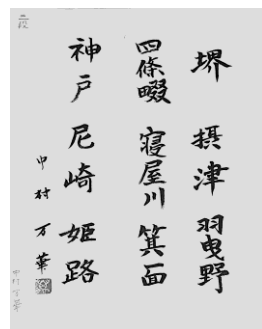 堺 摂津 羽曳野
四條畷 寝屋川 箕面
神戸 尼崎 姫路
中村万華
二段
中村万華